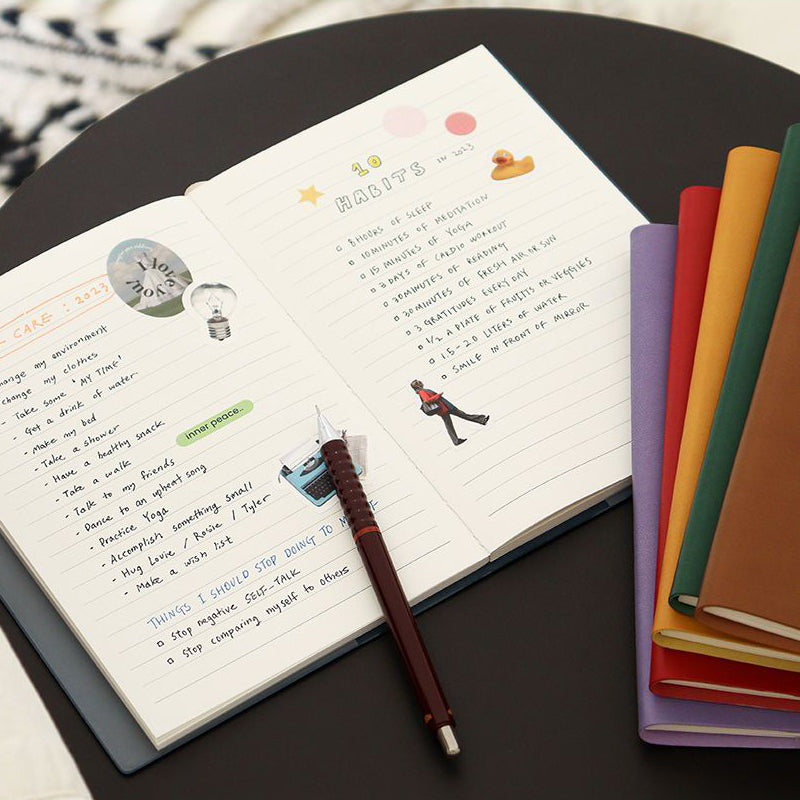 CARE : 2023
change my environment
change my clothes
- Take some 'MY TIME'
- Get a drink of water
- Make my bed
- Take a shower
- Have a healthy snack
- Take a walk
- Talk to my friends
- Dance to an upbeat song
- Practice Yoga
- Accomplish something small
- Hug Louie / Rosie / Tyler
- Make a wish list
inner peace..
THINGS I SHOULD STOP DOING TO
□ Stop negative SELF-TALK
□ Stop comparing myself to others
10
HABITS IN 2023
□ 8 HOURS OF SLEEP
□ 10 MINUTES OF MEDITATION
□ 15 MINUTES OF YOGA
□ 3 DAYS OF CARDIO WORKOUT
□ 30 MINUTES OF READING
□ 30 MINUTES OF FRESH AIR OR SUN
□ 3 GRATITUDES EVERY DAY
□ 1/2 A PLATE OF FRUITS OR VEGGIES
□ 1.5-2.0 LITERS OF WATER
□ SMILE IN FRONT OF MIRROR